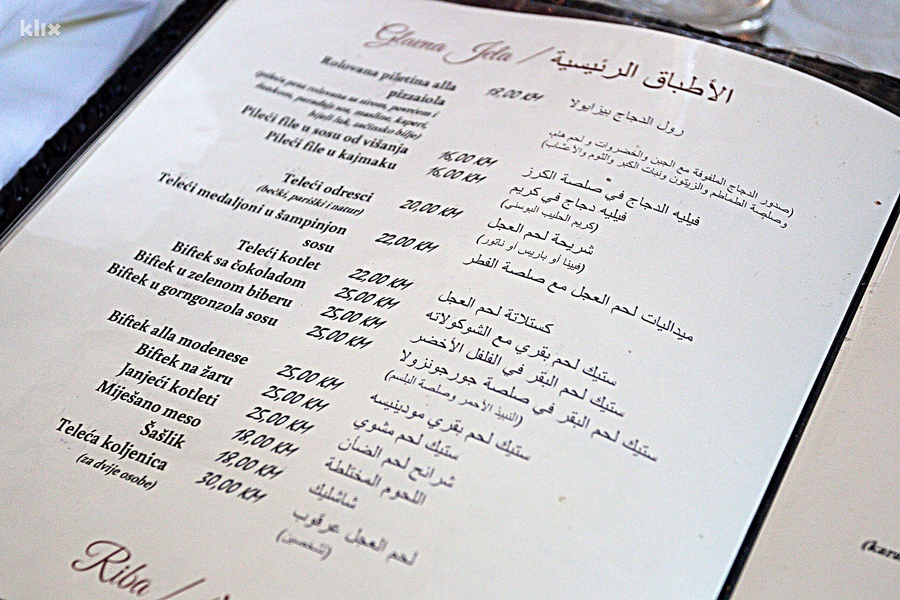 klix
Glavna Jela / الأطباق الرئيسية
Rolovana piletina alla
pizzaiola 18,00 KM رول الدجاج بيزايولا
(pileća prsa rolovana sa sirom, povrćem i
šunkom, paradajz sos, masline, kaperi,
bijeli luk, začinsko bilje)
(صدور الدجاج الملفوفة مع الجبن والخضروات و لحم هام،
وصلصة الطماطم والزيتون ونبات الكبر والثوم والأعشاب)
Pileći file u sosu od višanja 16,00 KM فيليه الدجاج في صلصة الكرز
Pileći file u kajmaku 16,00 KM فيليه دجاج في كريم
(كريم الحليب البوسني)
Teleći odresci 20,00 KM شريحة لحم العجل
(bečki, pariški i natur) (فيينا أو باريس أو ناتور)
Teleći medaljoni u šampinjon
sosu 22,00 KM ميداليات لحم العجل مع صلصة الفطر
Teleći kotlet 22,00 KM كستلاتة لحم العجل
Biftek sa čokoladom 25,00 KM ستيك لحم بقري مع الشوكولاته
Biftek u zelenom biberu 25,00 KM ستيك لحم البقر في الفلفل الأخضر
Biftek u gorngonzola sosu 25,00 KM ستيك لحم البقر في صلصة جورجونزولا
(النبيذ الأحمر وصلصة البلسم)
Biftek alla modenese 25,00 KM ستيك لحم بقري مودينيسه
Biftek na žaru 25,00 KM ستيك لحم مشوي
Janjeći kotleti 25,00 KM شرائح لحم الضأن
Miješano meso 18,00 KM اللحوم المختلطة
Šašlik 18,00 KM شاشليك
Teleća koljenica 30,00 KM لحم العجل عرقوب
(za dvije osobe) (شخصين)
Riba /